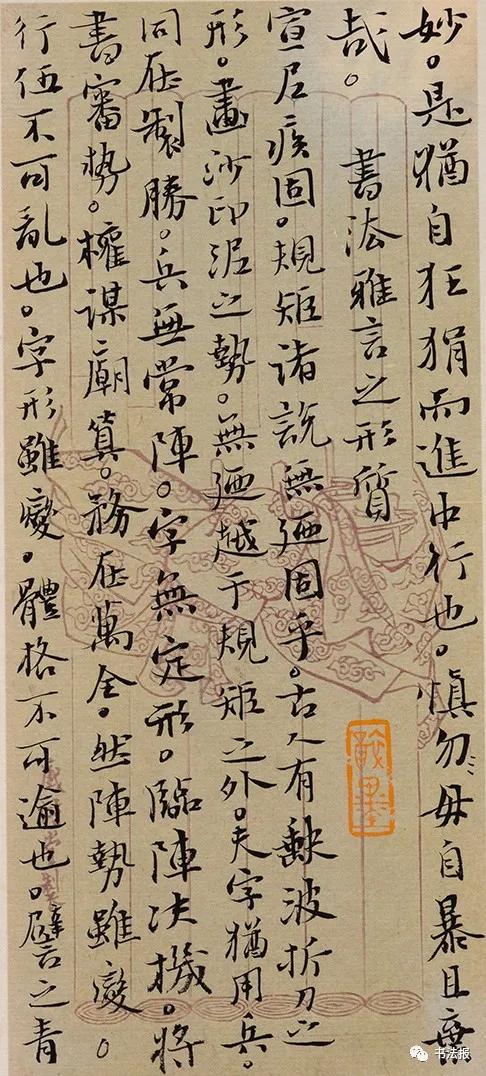 妙。是猶自狂狷而進中行也。慎勿毋自暴且棄
哉。 書法雅言之形質
宣尼疾固。規矩諸說無迺固乎。古人有缺波折刀之
形。畫沙印泥之勢。無迺越于規矩之外。夫字猶用兵。
同在製勝。兵無常陣。字無定形。臨陣决機。將
書審勢。權謀廟算。務在萬全。然陣勢雖變。
行伍不可亂也。字形雖變。體格不可逾也。譬之青
书法报